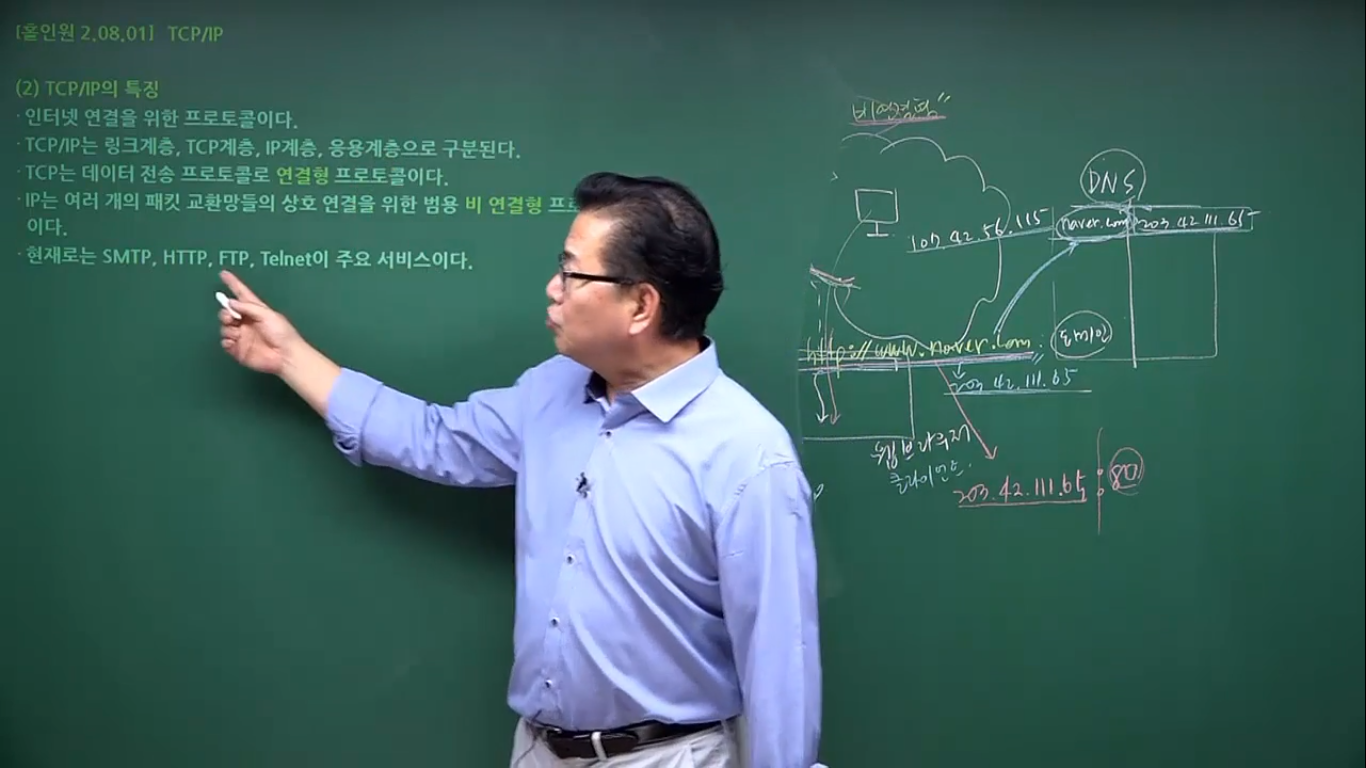 [홀인원 2.08.01] TCP/IP
(2) TCP/IP의 특징
· 인터넷 연결을 위한 프로토콜이다.
· TCP/IP는 링크계층, TCP계층, IP계층, 응용계층으로 구분된다.
· TCP는 데이터 전송 프로토콜로 연결형 프로토콜이다.
· IP는 여러 개의 패킷 교환망들의 상호 연결을 위한 범용 비 연결형 프로
이다.
· 현재로는 SMTP, HTTP, FTP, Telnet이 주요 서비스이다.
DNS
107.42.56.115
naver.com 203.42.111.65
http://www.naver.com
도메인
203.42.111.65
웹브라우저
클라이언트
203.42.111.65 : 80